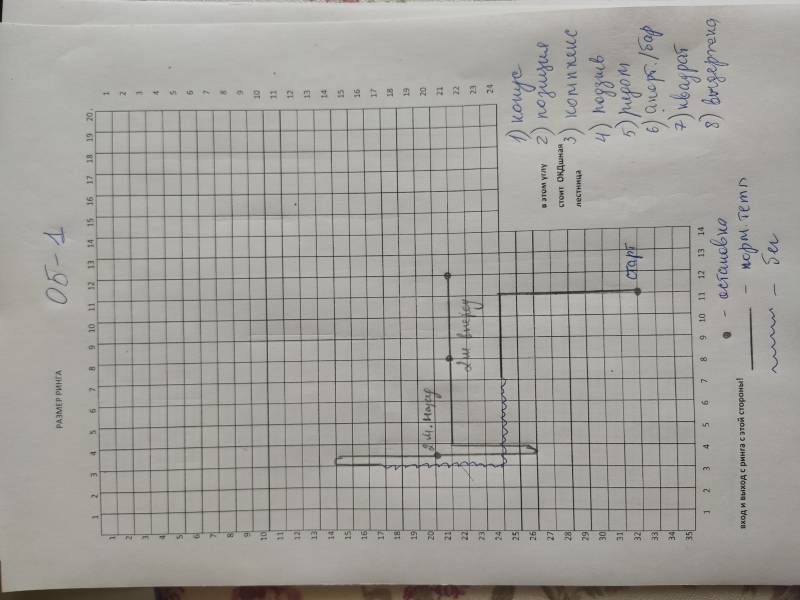 ОБ-1
РАЗМЕР РИНГА
1 2 3 4 5 6 7 8 9 10 11 12 13 14 15 16 17 18 19 20
1
2
3
4
5
6
7
8
9
10
11
12
13
14
15
16
17
18
19
20
21
22
23
24
25
26
27
28
29
30
31
32
33
34
35
1
2
3
4
5
6
7
8
9
10
11
12
13
14
15
16
17
18
19
20
21
22
23
24
2 ш. назад
2 ш вперёд
старт
1 2 3 4 5 6 7 8 9 10 11 12 13 14
в этом углу
стоит ОКДшная
лестница
1) конус
2) позиция
3) комплекс
4) подзыв
5) рядом
6) апорт./бар
7) квадрат
8) выдержка
вход и выход с ринга с этой стороны!
- остановка
- норм. темп
- бег